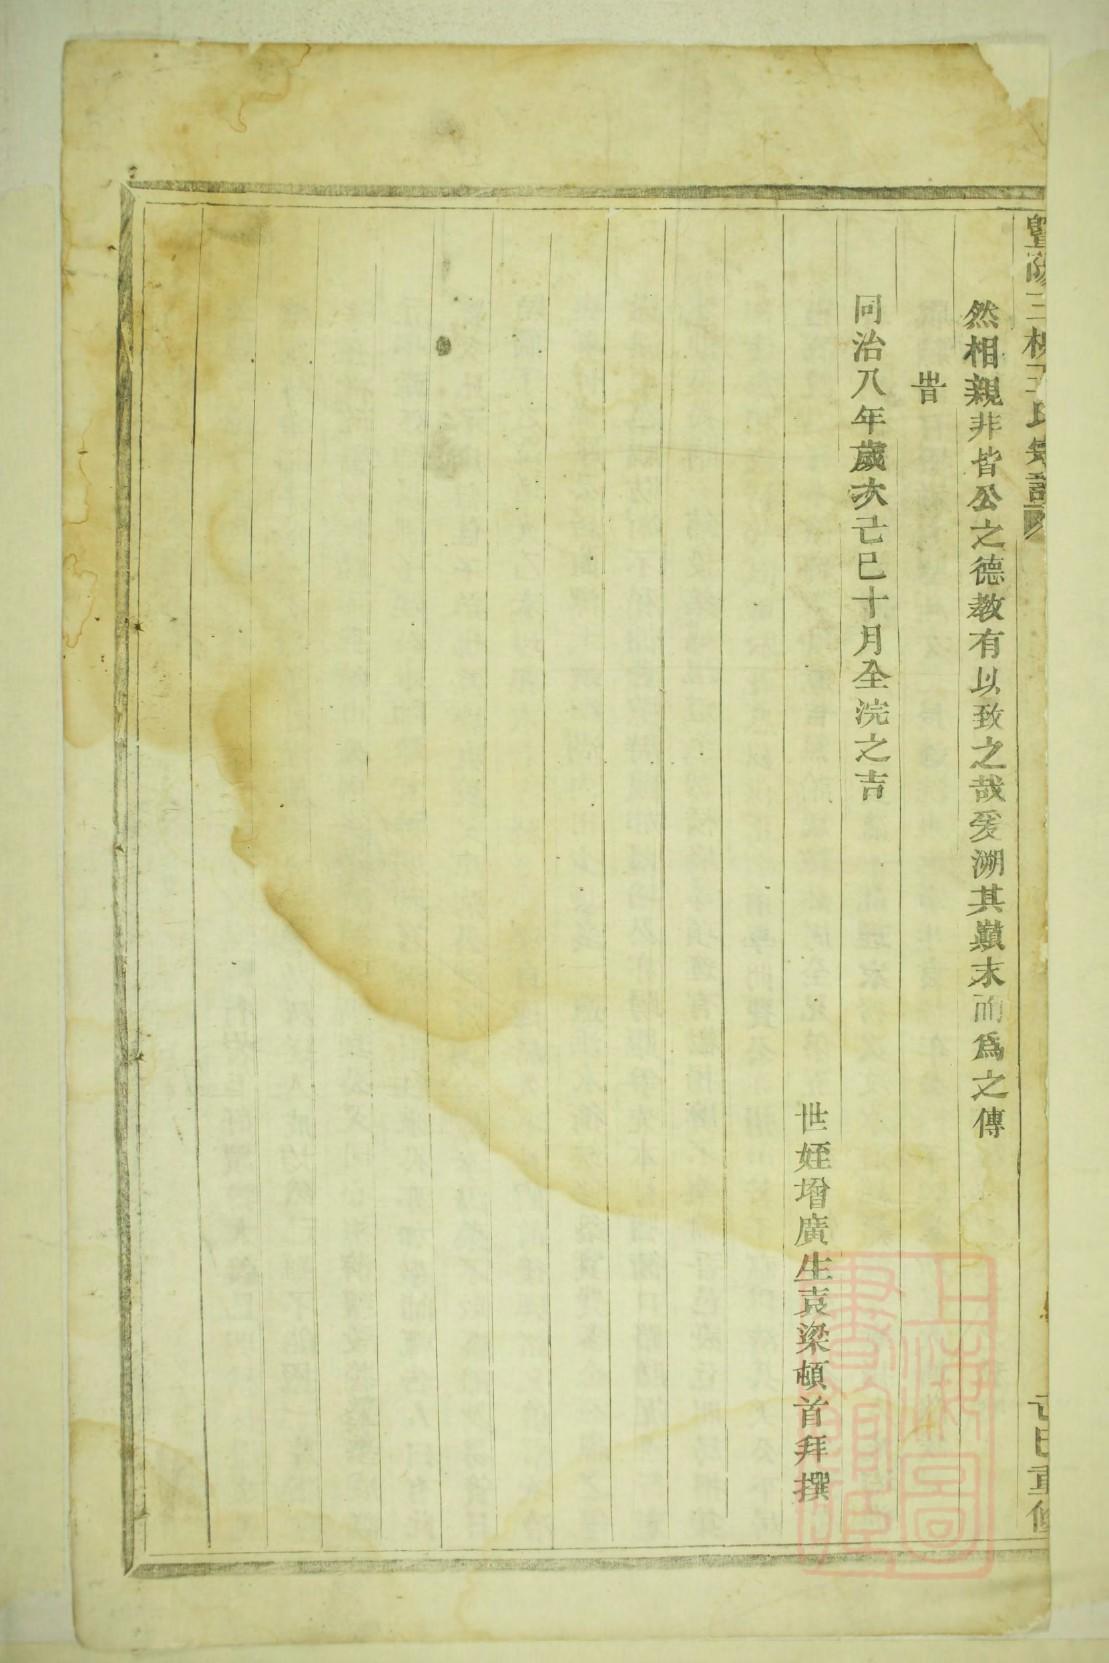 暨陽
氏宗譜
然相親非皆公之德教有以致之哉爰溯其巔末而爲之傳
旹
同治八年歲次己巳十月全浣之吉
世姪增廣生袁梁頓首拜撰
己巳重修
上海圖書館藏